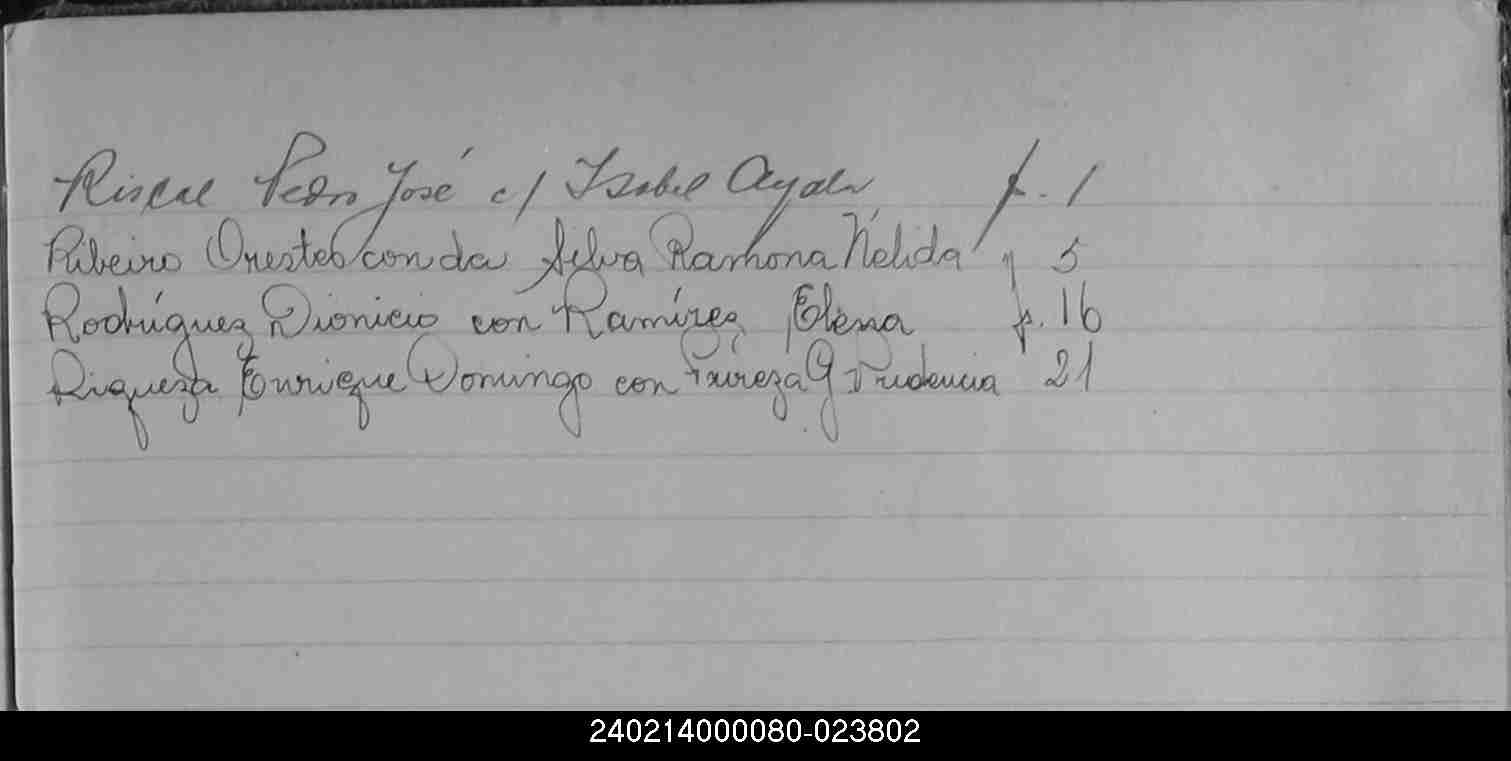 Riscal Pedro José c/ Isabel Ayala f. 1
Ribeiro Orestes con da Silva Ramona Nélida " 5
Rodríguez Dionicio con Ramírez Elena f. 16
Riqueza Enrique Domingo con G Prudencia 21
240214000080-023802